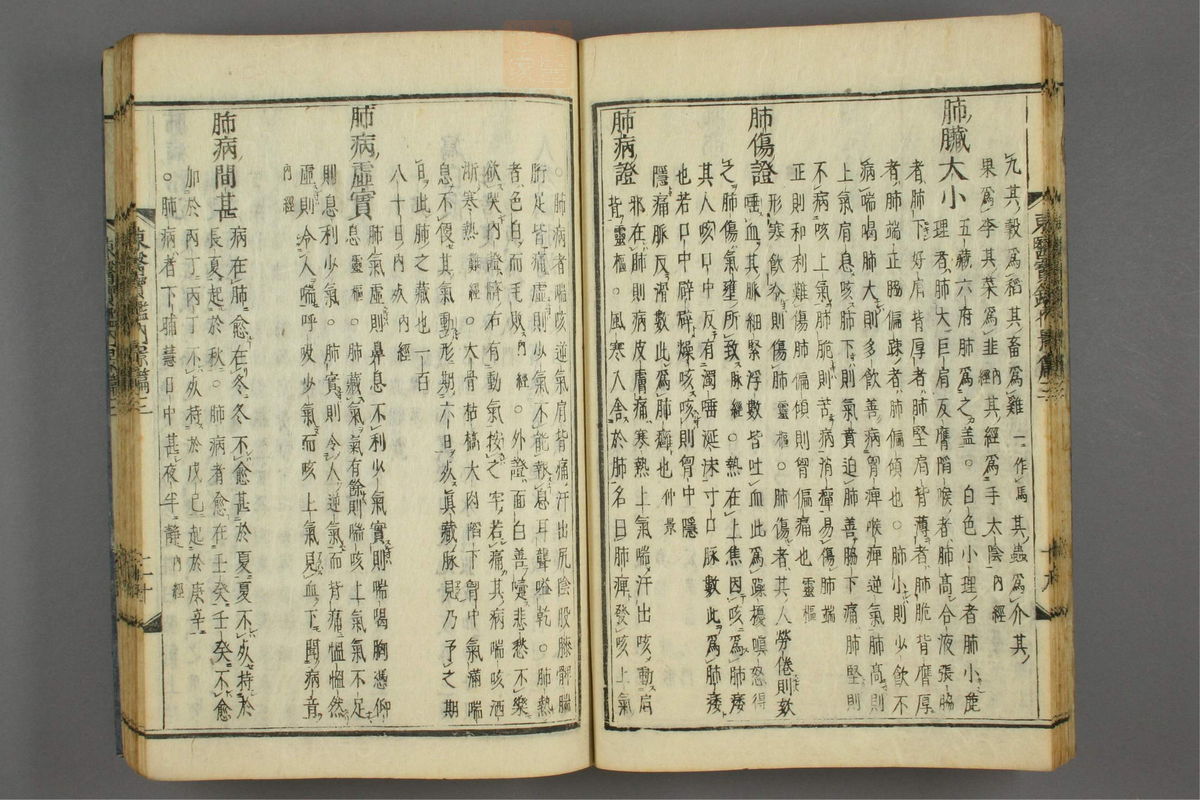 九其穀爲稻其畜爲雞一作馬其蟲爲介其
果爲李其菜爲韭內經其經爲手太陰內經
肺臟大小五藏六府肺爲之盖○白色小理者肺小麄
理者肺大巨肩反膺陷喉者肺高合液張脇
者肺下好肩背厚者肺堅肩背薄者肺脆背膺厚
者肺端正脇偏踈者肺偏傾也○肺小則少飲不
病喘喝肺大則多飲善病胷痺喉痺逆氣肺高則
上氣肩息咳肺下則氣賁迫肺善脇下痛肺堅則
不病咳上氣肺脆則苦病消癉易傷肺端
正則和利難傷肺偏傾則胷偏痛也靈樞
肺傷證形寒飮冷則傷肺靈樞○肺傷者其人勞倦則欬
唾血其脉細緊浮數皆吐血此爲躁擾嗔怒得
之肺傷氣壅所致脉經○熱在上焦因咳爲肺痿
其人咳口中反有濁唾涎沫寸口脉數此爲肺痿
也若口中辟辟燥咳咳則胷中隱
隱痛脈反滑數此爲肺癰也仲景
肺病證邪在肺則病皮膚痛寒熱上氣喘汗出咳動肩
背靈樞○風寒入舍於肺名曰肺痺發咳上氣
○肺病者喘咳逆氣肩背痛汗出尻陰股膝髀腨
胻足皆痛虛則少氣不能報息耳聾嗌乾○肺熱
者色白而毛敗內經○外證面白善嚏悲愁不樂
欲哭內證臍右有動氣按之牢若痛其病喘咳洒
淅寒熱難經○大骨枯槁大肉陷下胷中氣滿喘
息不便其氣動形期六月死眞藏脉見乃予之期
日此肺之藏也一百
八十日內死內經
肺病虛實肺氣虛則鼻息不利少氣實則喘喝胸憑仰
息靈樞○肺藏氣氣有餘則喘咳上氣氣不足
則息利少氣○肺實則令人逆氣而背痛慍慍然
虛則令人喘呼吸少氣而咳上氣見血下聞病音
內經
肺病間甚病在肺愈在冬冬不愈甚於夏夏不死持於
長夏起於秋○肺病者愈在壬癸壬癸不愈
加於丙丁丙丁不死持於戊己起於庚辛
○肺病者下晡慧日中甚夜半靜內經